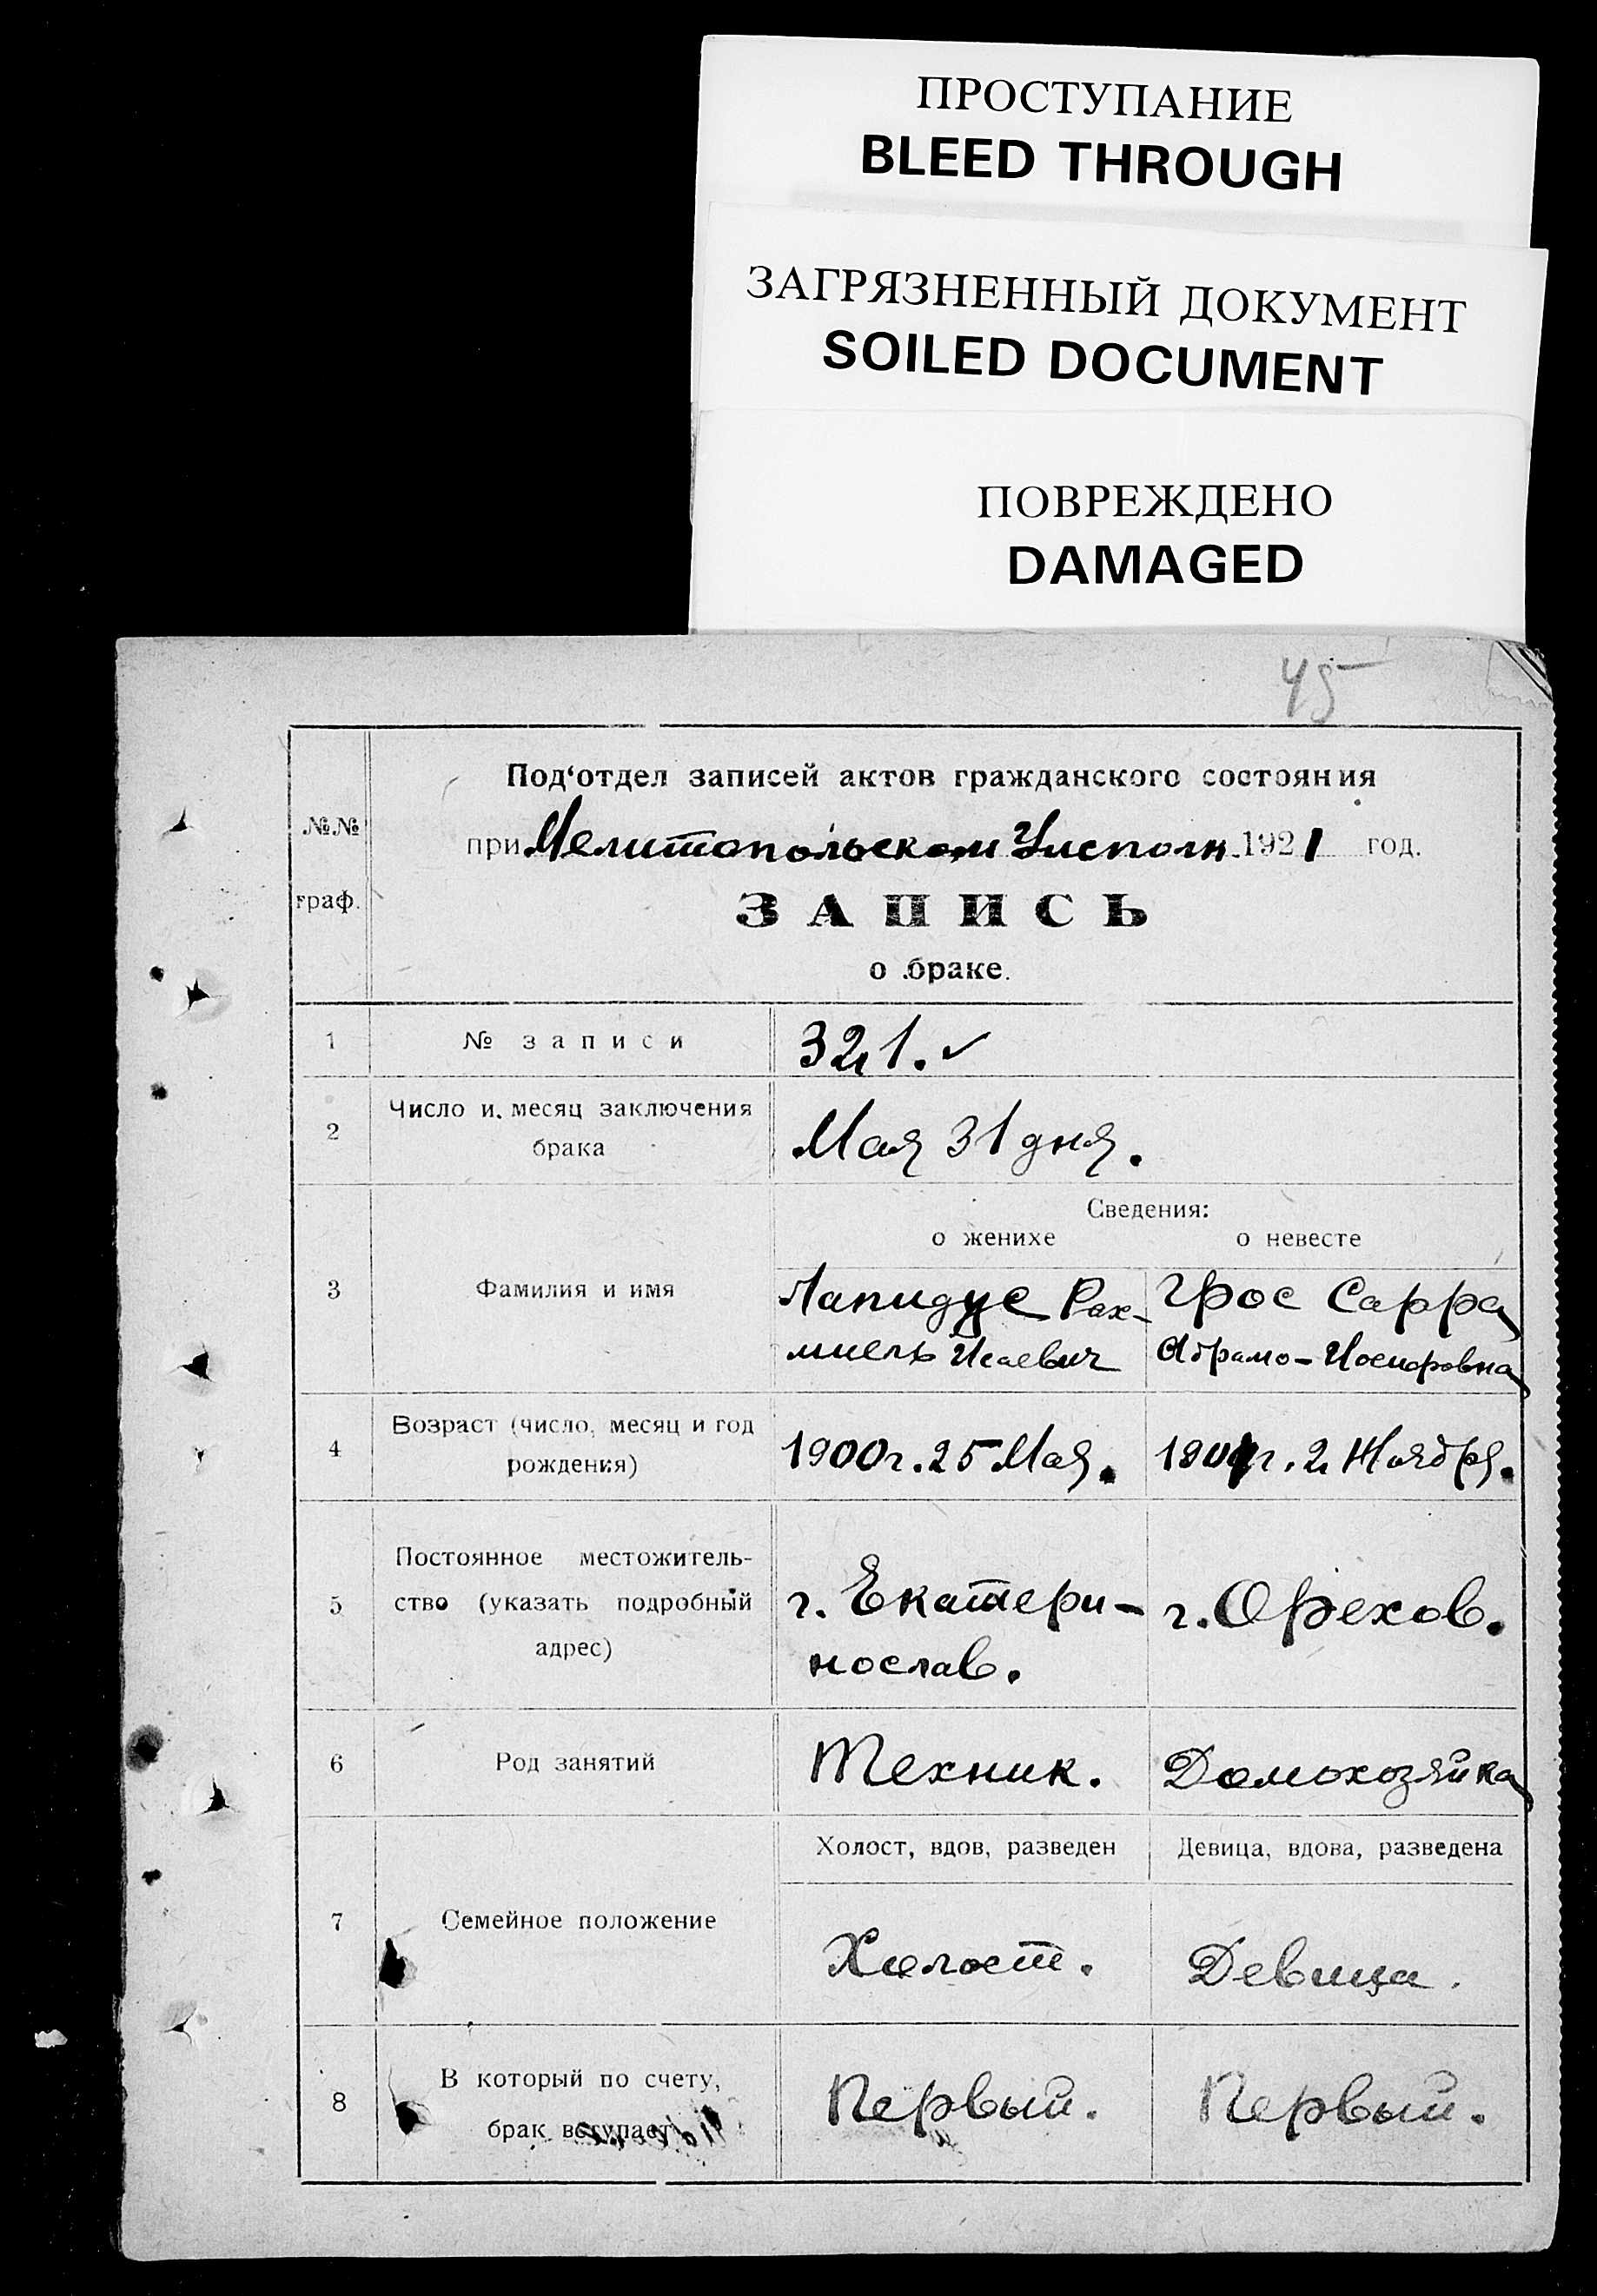 ПРОСТУПАНИЕ
BLEED THROUGH
ЗАГРЯЗНЕННЫЙ ДОКУМЕНТ
SOILED DOCUMENT
ПОВРЕЖДЕНО
DAMAGED
45
№№ граф.
Под‘отдел записей актов гражданского состояния
при Мелитопольском Уисполк. 1921 год.
ЗАПИСЬ
о браке.
1 № записи 321. ✓
2 Число и месяц заключения
брака
Мая 31 дня.
Сведения:
о женихе о невесте
3 Фамилия и имя
Лапидус Рах-
миель Исаевич
Грос Сарра
Абрамо-Иосифовна
4 Возраст (число, месяц и год
рождения)
1900 г. 25 Мая.
г. 2 Ноября.
5 Постоянное местожитель-
ство (указать подробный
адрес)
г. Екатери-
нослав.
г. Орехов.
6 Род занятий
Техник.
Домохозяйка
Холост, вдов, разведен
Девица, вдова, разведена
7 Семейное положение
Холост.
Девица.
8 В который по счету,
брак вступает
Первый.
Первый.